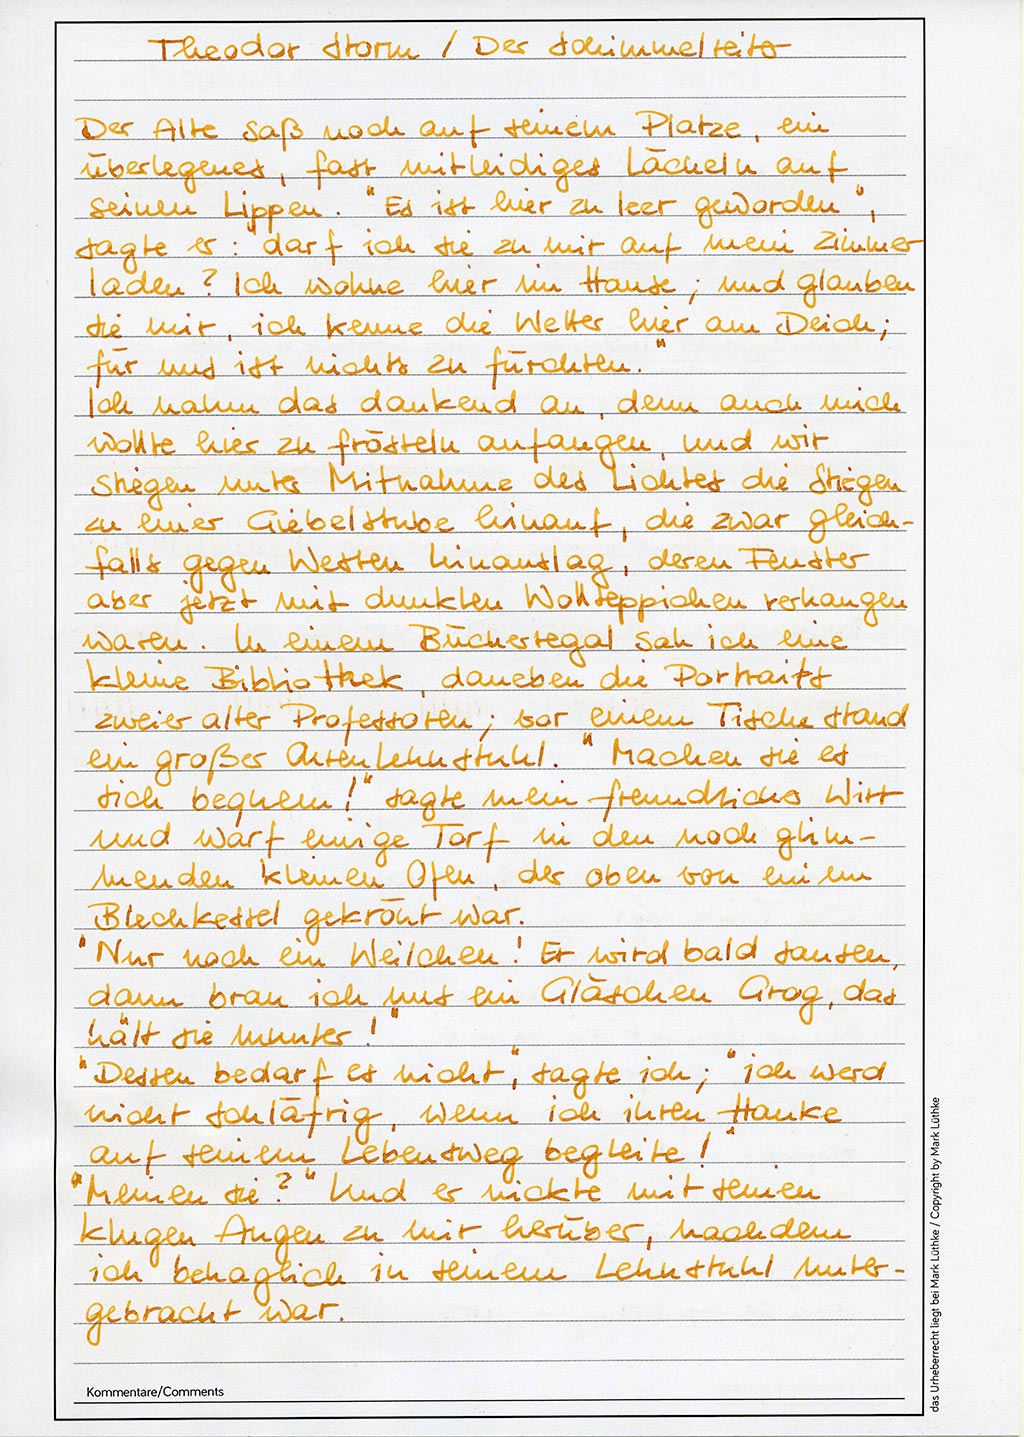 Theodor Storm / Der Schimmelreiter
Der Alte saß noch auf seinem Platze, ein
überlegenes, fast mitleidiges Lächeln auf
seinen Lippen. "Es ist hier zu leer geworden",
sagte er: "darf ich sie zu mir auf mein Zimmer
laden? Ich wohne hier im Hause; und glauben
sie mir, ich kenne die Wetter hier am Deich;
für uns ist nichts zu fürchten."
Ich nahm das dankend an, denn auch mich
wollte hier zu frösteln anfangen, und wir
stiegen unter Mitnahme des Lichtes die Stiegen
zu einer Giebelstube hinauf, die zwar gleich-
falls gegen Westen hinauslag, deren Fenster
aber jetzt mit dunklen Wollteppichen verhangen
waren. In einem Bücherregal sah ich eine
kleine Bibliothek, daneben die Portraits
zweier alter Professoren; vor einem Tische stand
ein großer Ohrenlehnstuhl. "Machen sie es
sich bequem!" sagte mein freundlicher Wirt
und warf einige Torf in den noch glim-
menden kleinen Ofen, der oben von einem
Blechkessel gekrönt war.
"Nur noch ein Weilchen! Er wird bald sausen,
dann brau ich uns ein Gläschen Grog, das
hält sie munter!"
"Dessen bedarf es nicht", sagte ich; "ich werd
nicht schläfrig, wenn ich ihren Hauke
auf seinem Lebensweg begleite!"
"Meinen sie?" Und er nickte mit seinen
klugen Augen zu mir herüber, nachdem
ich behaglich in seinem Lehnstuhl unter-
gebracht war.
Kommentare/Comments
das Urheberrecht liegt bei Mark Lüthke / Copyright by Mark Lüthke